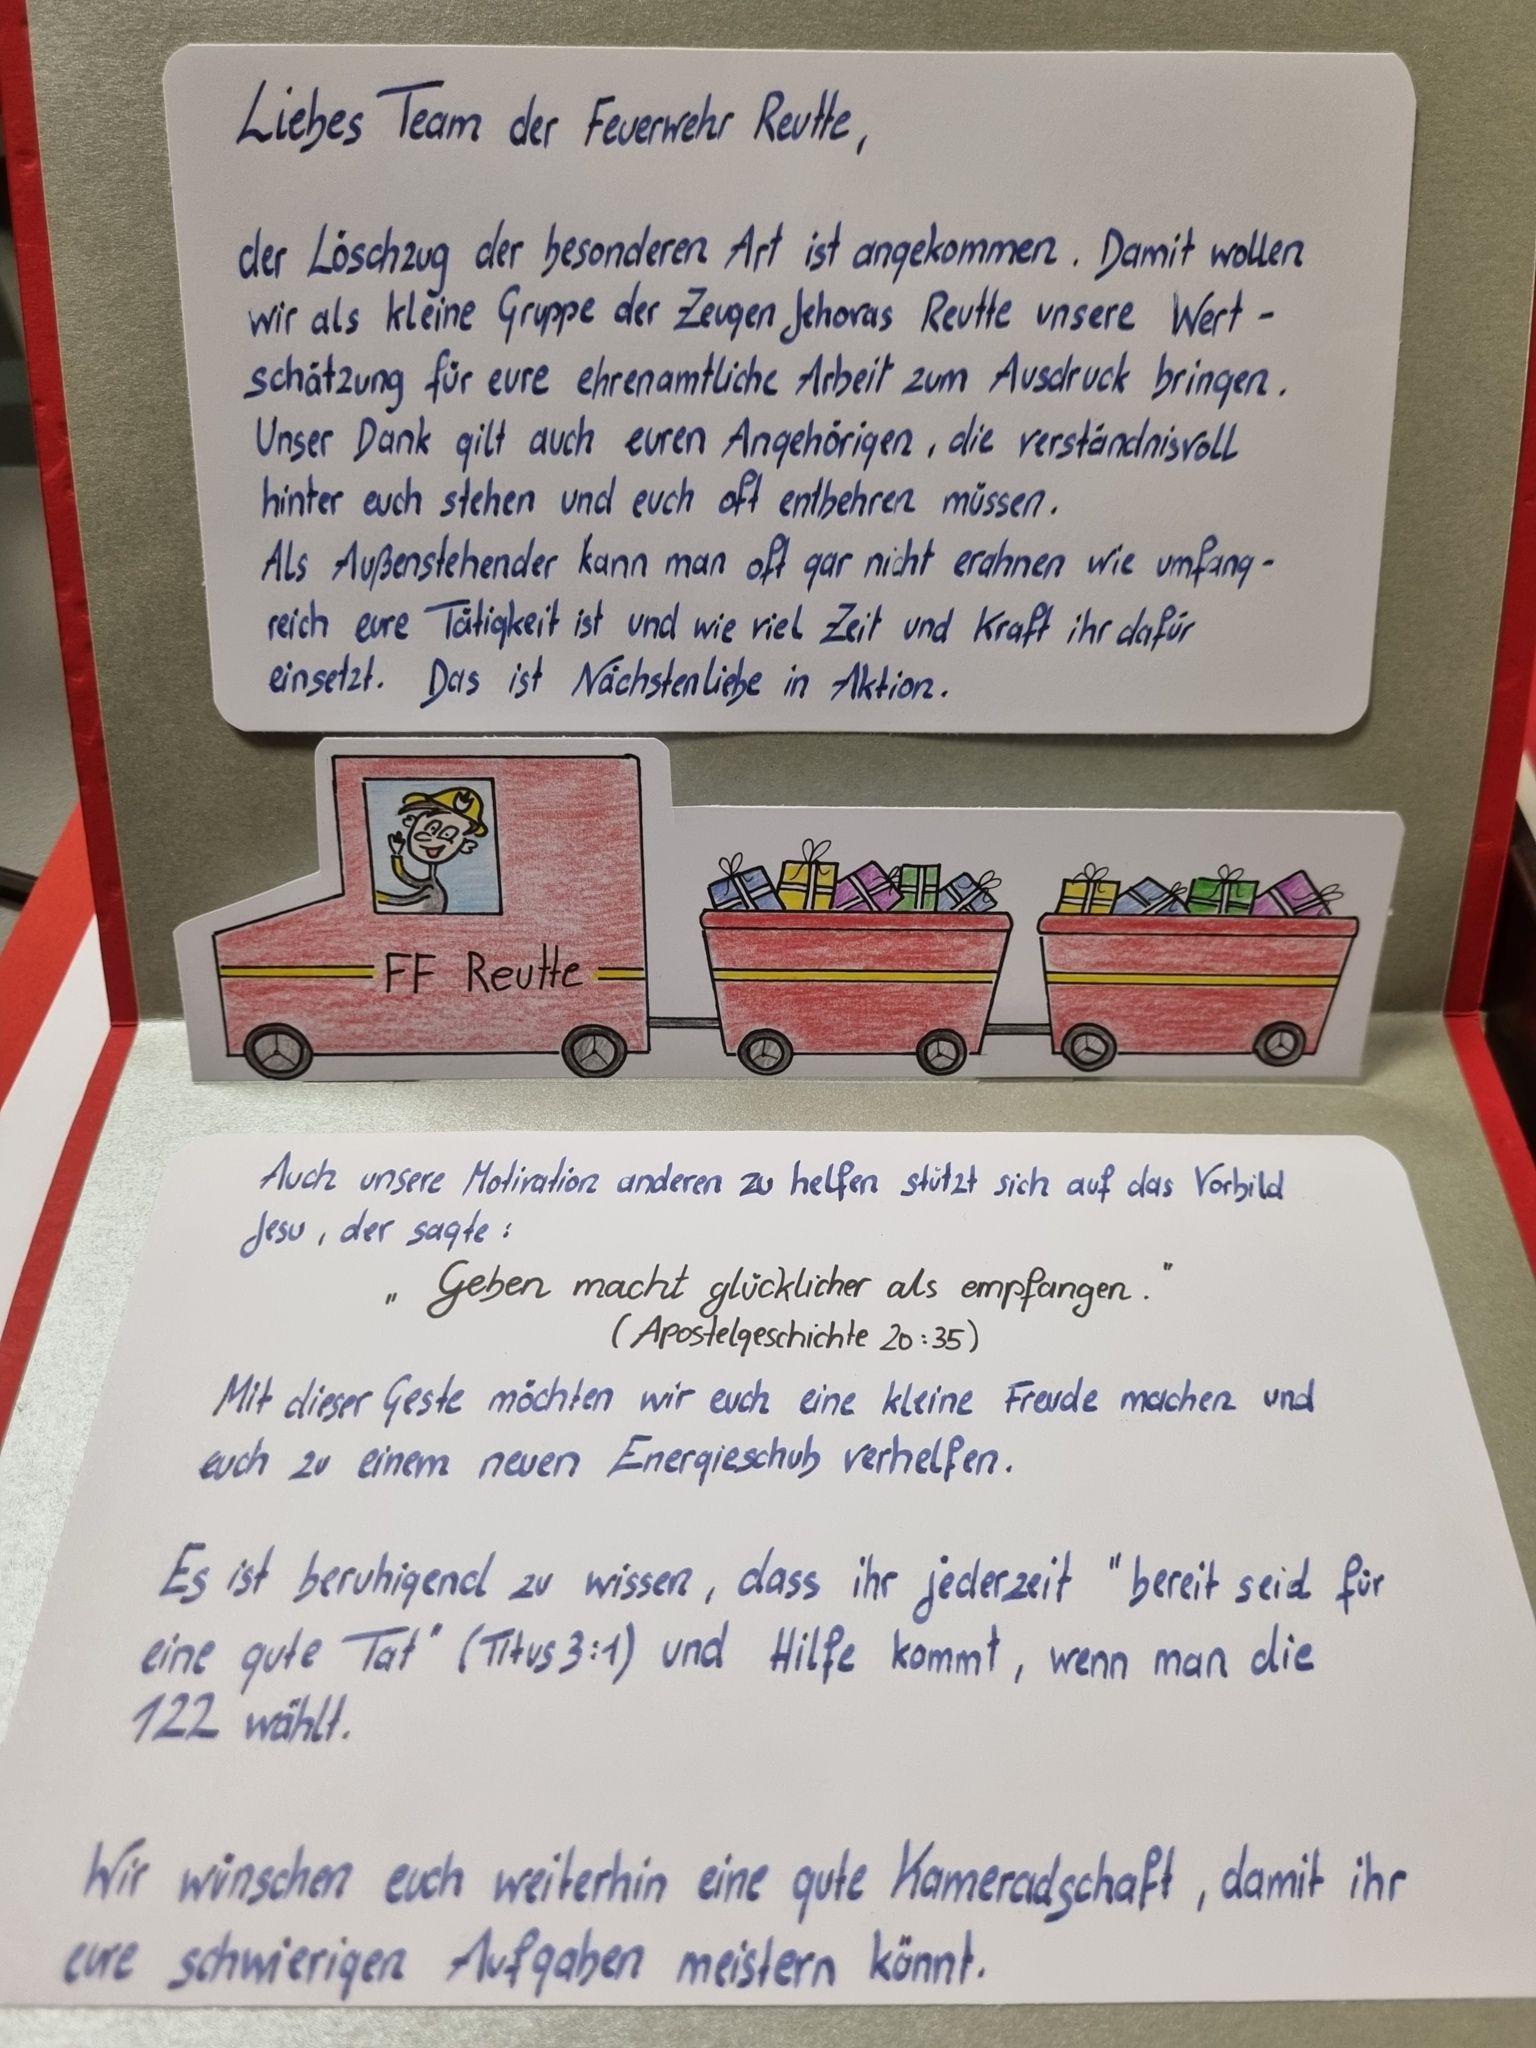 Liebes Team der Feuerwehr Reutte,
der Löschzug der besonderen Art ist angekommen. Damit wollen
wir als kleine Gruppe der Zeugen Jehovas Reutte unsere Wert-
schätzung für eure ehrenamtliche Arbeit zum Ausdruck bringen.
Unser Dank gilt auch euren Angehörigen, die verständnisvoll
hinter euch stehen und euch oft entbehren müssen.
Als Außenstehender kann man oft gar nicht erahnen wie umfang-
reich eure Tätigkeit ist und wie viel Zeit und Kraft ihr dafür
einsetzt. Das ist Nächstenliebe in Aktion.
FF Reutte
Auch unsere Motivation anderen zu helfen stützt sich auf das Vorbild
Jesu, der sagte:
„Geben macht glücklicher als empfangen."
(Apostelgeschichte 20:35)
Mit dieser Geste möchten wir euch eine kleine Freude machen und
euch zu einem neuen Energieschub verhelfen.
Es ist beruhigend zu wissen, dass ihr jederzeit "bereit seid für
eine gute Tat" (Titus 3:1) und Hilfe kommt, wenn man die
122 wählt.
Wir wünschen euch weiterhin eine gute Kameradschaft, damit ihr
eure schwierigen Aufgaben meistern könnt.